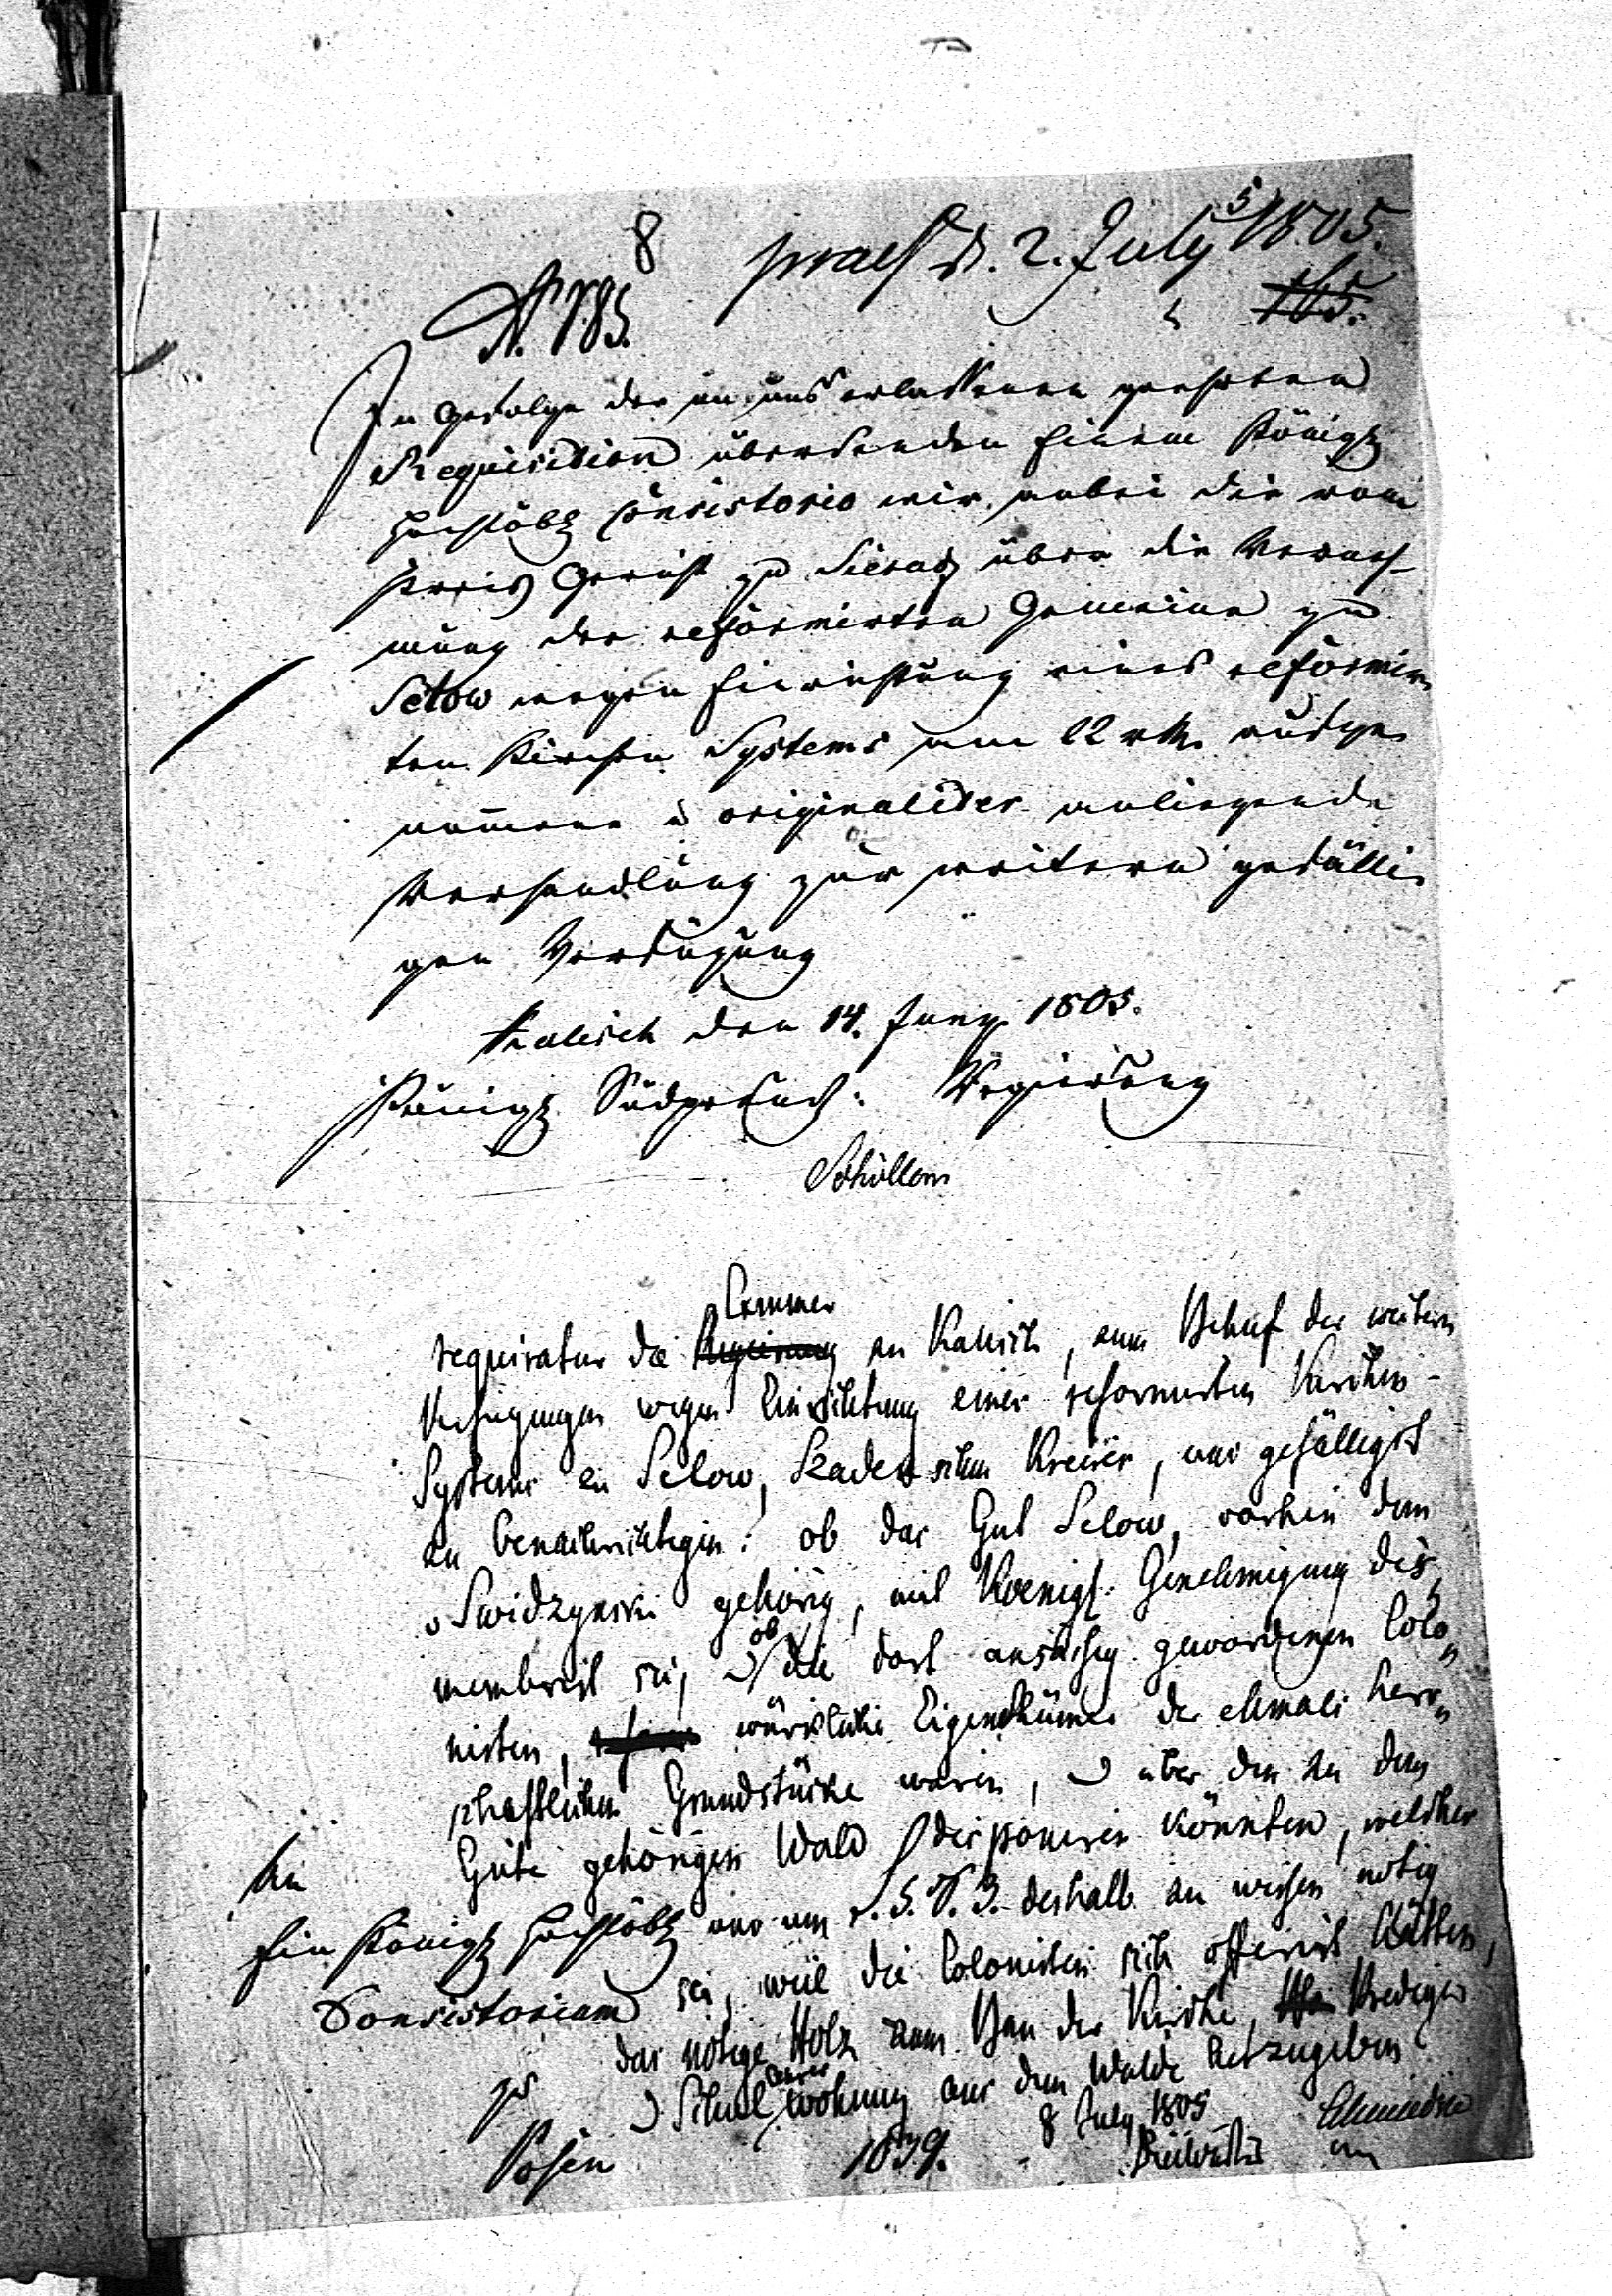 8
praes d. 2. July 1805.
5
N. 785.
165.
In Gefolge der an uns erlassenen geehrten
Requisition übersenden Einem Königl
Hochlöbl Consistorio wir anbei die vom
Kreis Gericht zu Sieradz über die Verneh-
mung der reformirten Gemeine zu
Selow wegen Einrichtung eines reformir
ten Kirchen Systems am 22 v Mts aufge
nommene u originaliter anliegende
Verhandlung zur weitern gefälli
gen Verfügung
Kalisch den 14. Juny 1805.
Königl Südpreuß: Regierung
Cammer
requiratur die Regierung zu Kalisch, zum Behuf der weitern
Verfügungen wegen Einrichtung eines reformirten Kirchen-
Systems zu Selow, Szadekschen Kreises, uns gefälligst
zu benachrichtigen: ob das Gut Selow, vorhin dem
v Swidzynski gehörig, mit Koenigl. Genehmigung dis
membrirt sei, ob die dort ansäßig gewordenen Colo
nisten, würkliche Eigenthümer der ehmals herr
schaftlichen Grundstücke wären, über den zu dem
Gute gehörigen Wald disponiren könnten, welches
uns um deshalb zu wissen nötig
sei, weil die Colonisten sich offerirt hätten,
das nötige Holz zum Bau der Kirche, Prediger
Schul wohnung aus dem Walde herzugeben
8 July 1805
1039.
An
Ein Königl Hochlöbl
Consistorium
zu
Posen